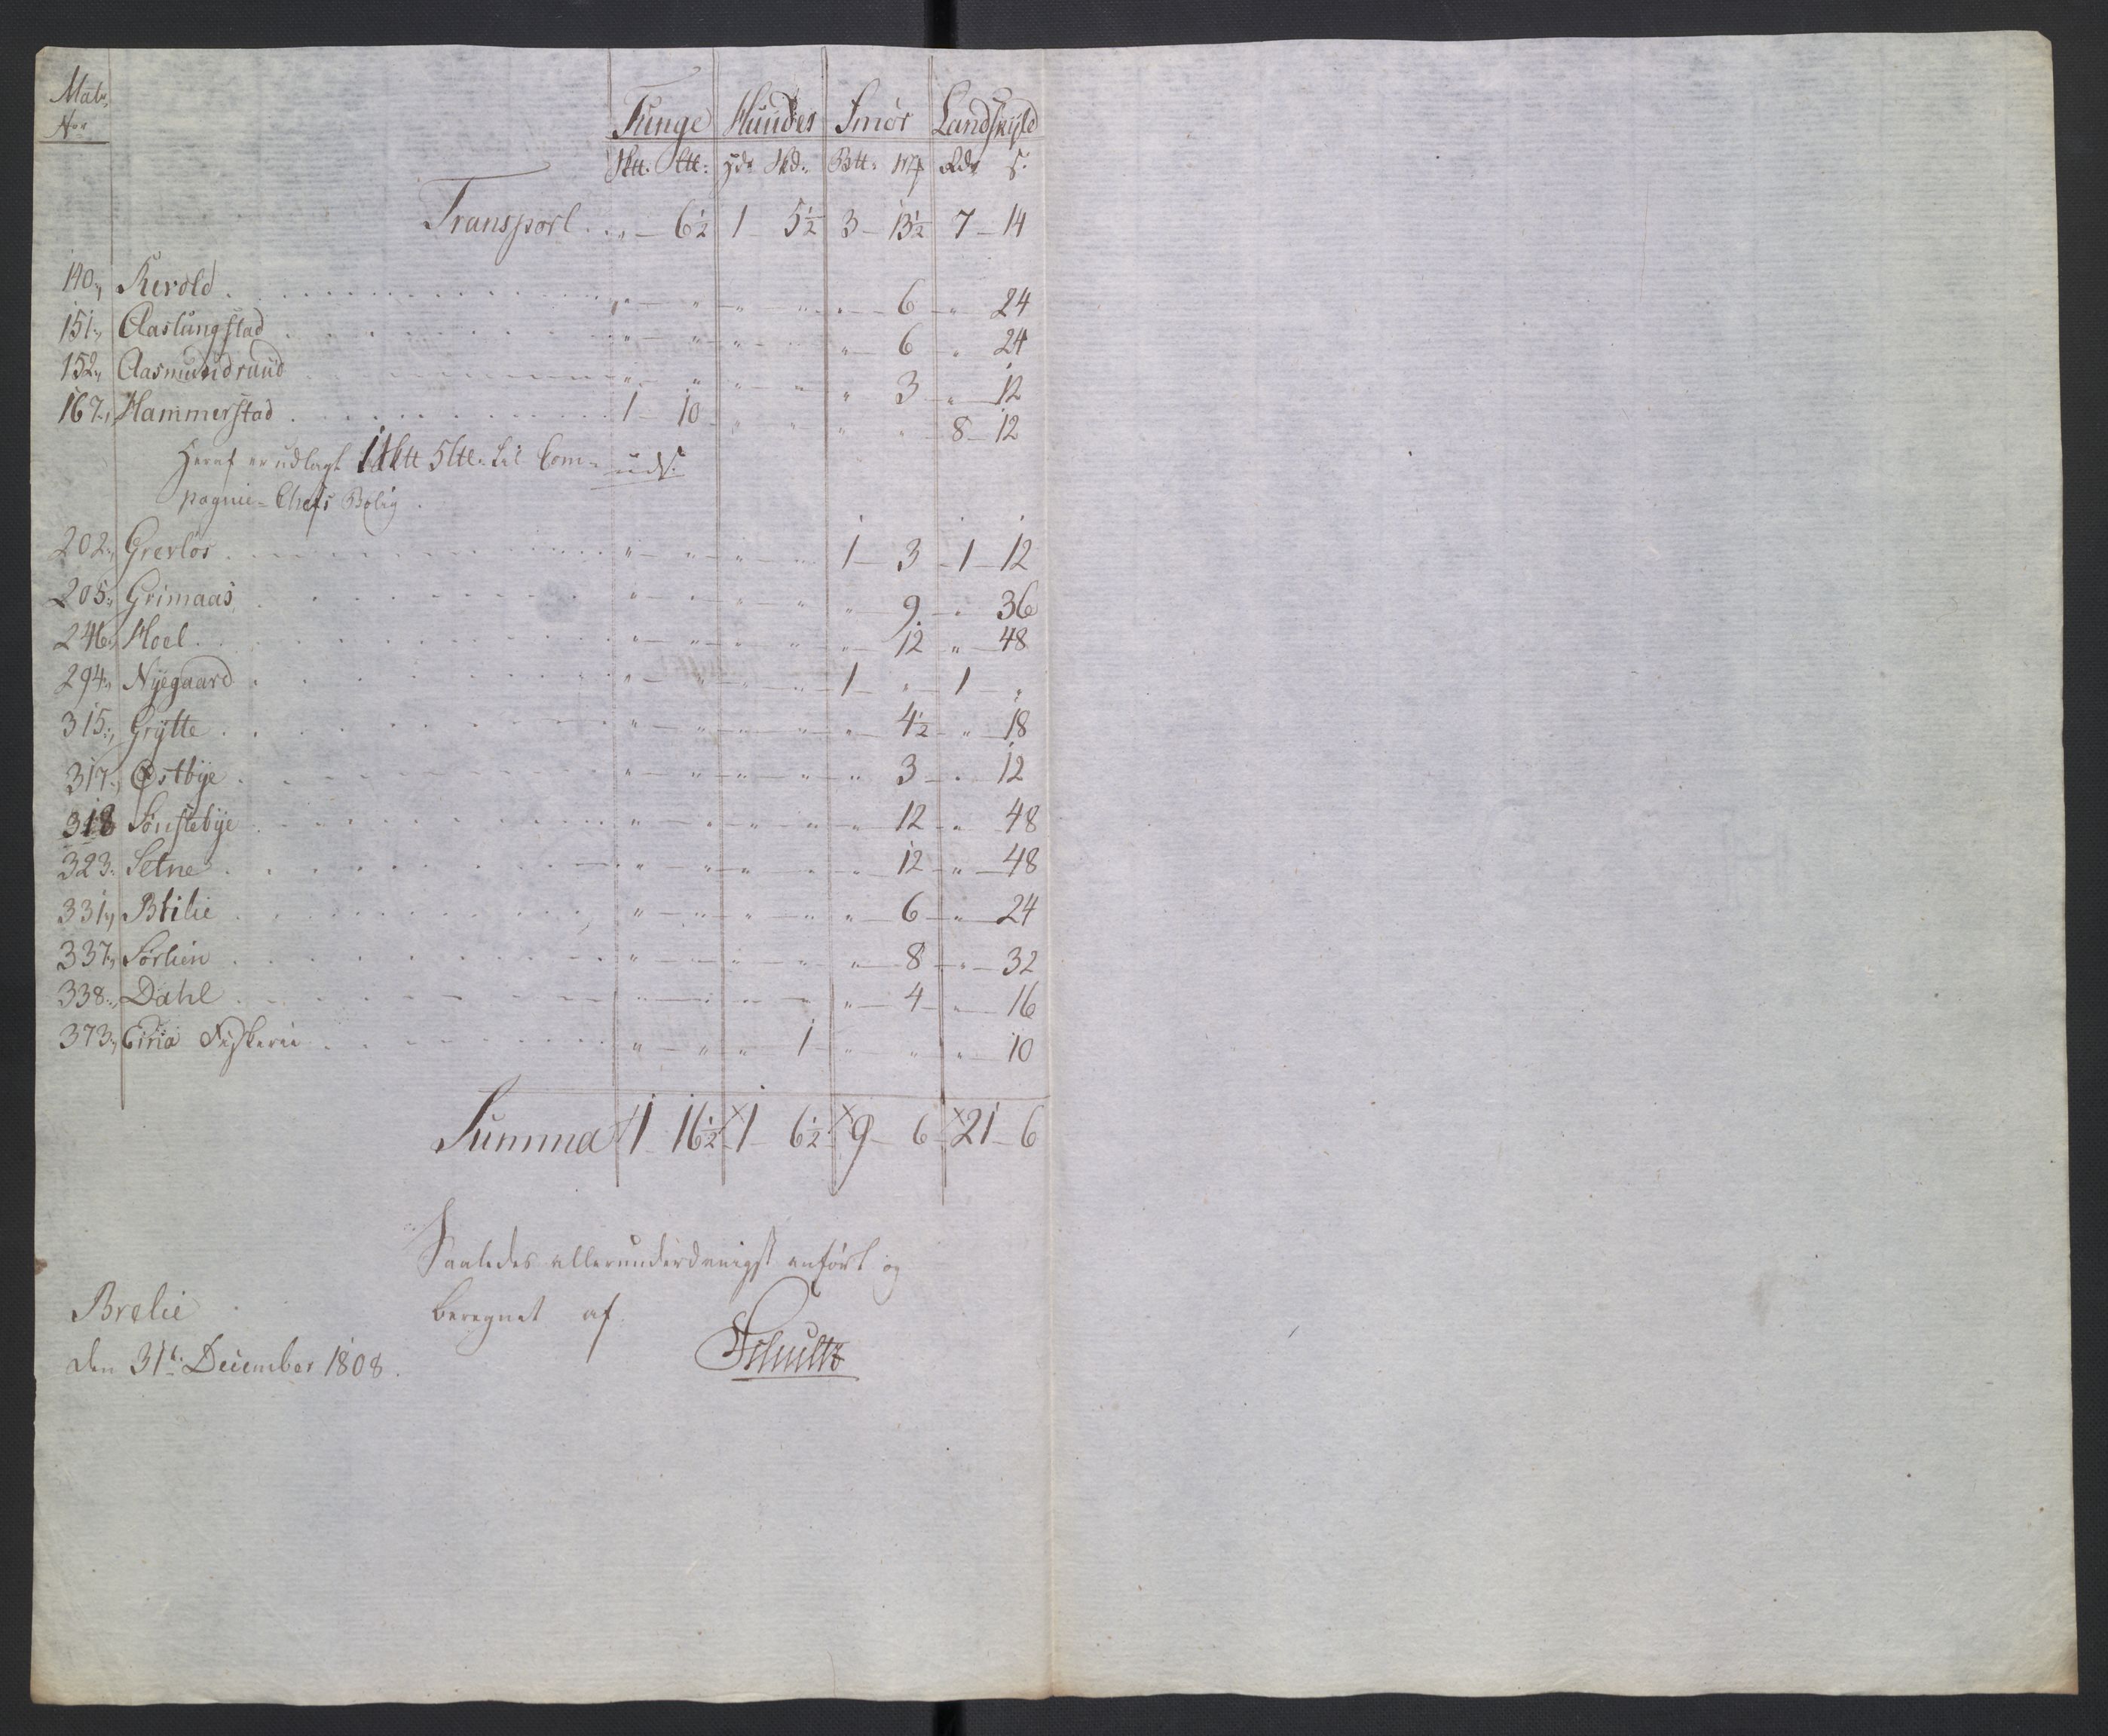 Matr.
Nor
Tunge Huudes Smör Landskyld
Sktt: Ltt: Hdr Skd: Btt: Mk Rdr s:
Transport . „ — 6½ 1 — 5½ 3 — 13½ 7 — 14
140„ Rerold . „ — „ „ — „ „ — 6 „ — 24
151„ Aaslungstad . „ — „ „ — „ „ — 6 „ — 24
152„ Aasmundruud „ — „ „ — „ „ — 3 „ — 12
167„ Hammerstad . 1 — 10 „ — „ „ — „ 8 — 12
Heraf er udlagt 1 Sktt 5 Ltt: til Com-
pagnie-Chefs Bolig .
202„ Grevlös . „ — „ „ — „ 1 — 3 1 — 12
205„ Grimaas . „ — „ „ — „ „ — 9 „ — 36
246„ Moel . „ — „ „ — „ „ — 12 „ — 48
294„ Nyegaard . „ — „ „ — „ 1 — „ 1 — „
315„ Grytte . „ — „ „ — „ „ — 4½ „ — 18
317„ Østbye . „ — „ „ — „ „ — 3 „ — 12
318 Sönstebye . „ — „ „ — „ „ — 12 „ — 48
323„ Setne . „ — „ „ — „ „ — 12 „ — 48
331„ Btilie . „ — „ „ — „ „ — 6 „ — 24
337„ Sörlien . „ — „ „ — „ „ — 8 „ — 32
338„ Dahl . „ — „ „ — „ „ — 4 „ — 16
373„ Eiriæ Fiskerie . „ — „ „ — 1 „ — „ „ — 10
Summa 1 — 16½ 1 — 6½ 9 — 6 21 — 6
Saaledes allerunderdanigst anfört og
Brelie beregnet af
den 31te December 1808. Schultz